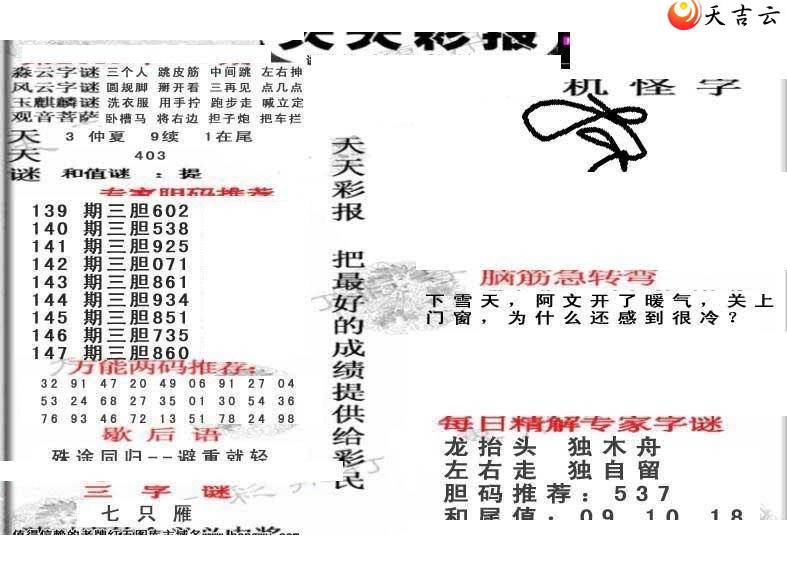 天吉云
天天彩报
森云字谜 三个人 跳皮筋 中间跳 左右抻
风云字谜 圆规脚 掰开看 三再见 点几点
玉麒麟谜 洗衣服 用手拧 跑步走 喊立定
观音菩萨 卧槽马 将右边 担子炮 把车拦
天 3 仲夏 9续 1在尾
天 403
谜 和值谜 : 提
专家胆码推荐
139 期三胆602
140 期三胆538
141 期三胆925
142 期三胆071
143 期三胆861
144 期三胆934
145 期三胆851
146 期三胆735
147 期三胆860
万能两码推荐:
32 91 47 20 49 06 91 27 04
53 24 68 27 35 01 30 54 36
76 93 46 72 13 51 78 24 98
歇后语
殊途同归--避重就轻
三字谜
七只雁
天天彩报 把最好的成绩提供给彩民
机怪字
脑筋急转弯
下雪天，阿文开了暖气，关上
门窗，为什么还感到很冷？
每日精解专家字谜
龙抬头 独木舟
左右走 独自留
胆码推荐：537
和尾值：09 10 18